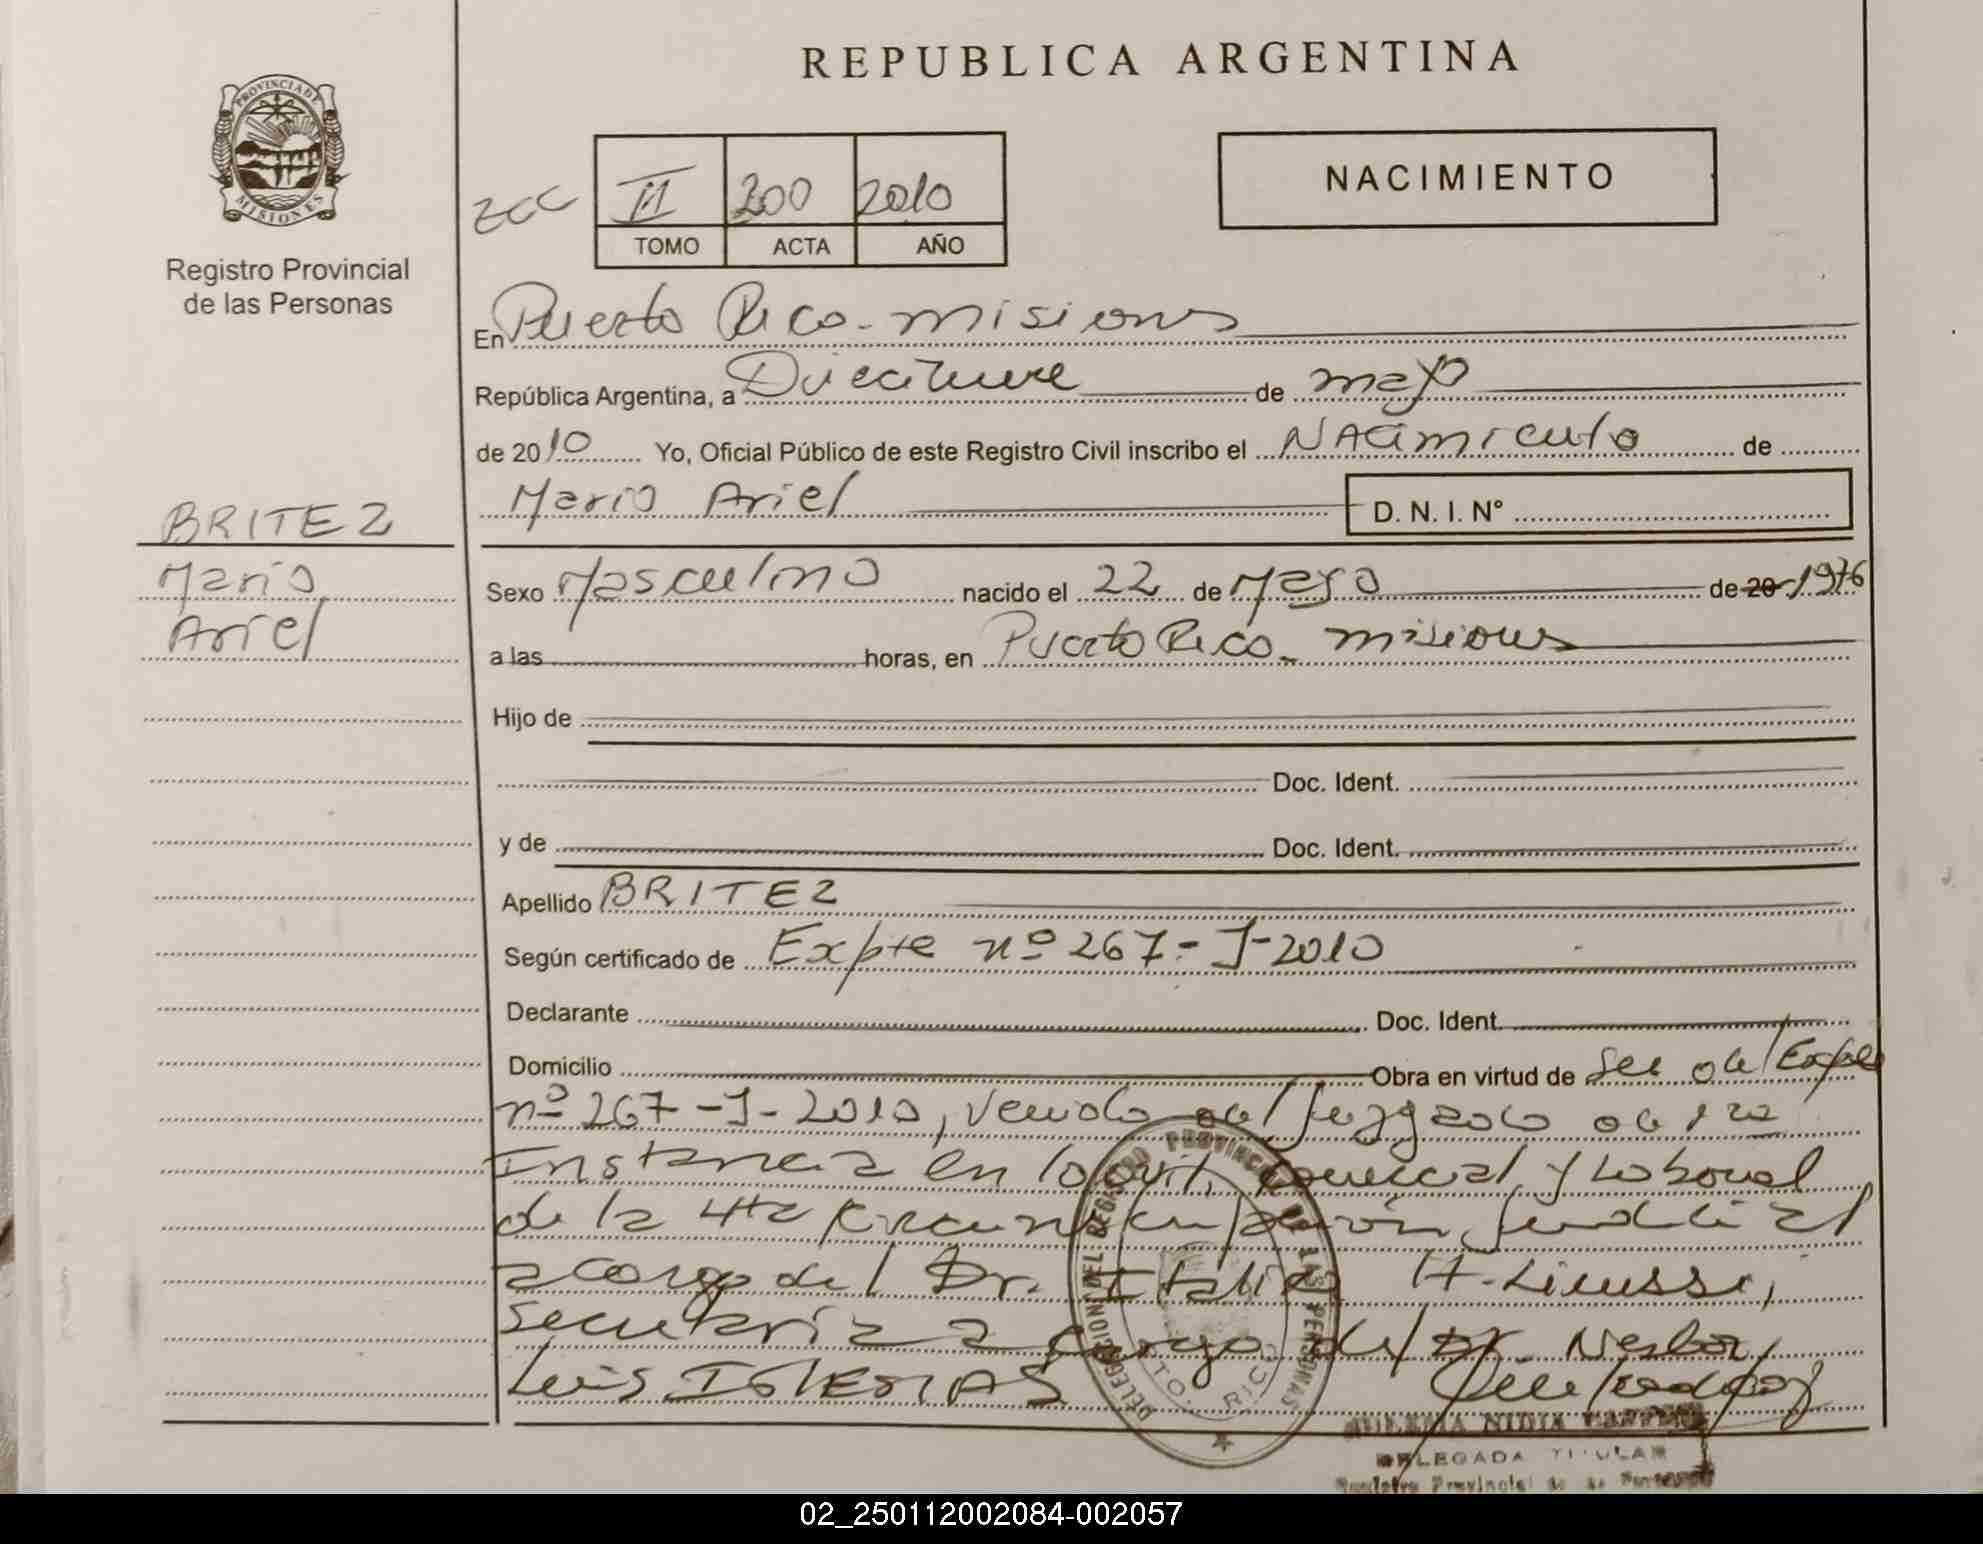 REPUBLICA ARGENTINA
PROVINCIA DE
MISIONES
Registro Provincial
de las Personas
200 II 200 2010
TOMO ACTA AÑO
NACIMIENTO
En Puerto Rico - misiones
República Argentina, a Diecinueve de mayo
de 2010 Yo, Oficial Público de este Registro Civil inscribo el NAcimiento de
Mario Ariel D. N. I. N°
BRITEZ
Mario
Ariel
Sexo Masculino nacido el 22 de Mayo de 20 1976
a las horas, en Puerto Rico - misiones
Hijo de
Doc. Ident.
y de Doc. Ident.
Apellido BRITEZ
Según certificado de Expte nº 267 - J - 2010
Declarante Doc. Ident.
Domicilio Obra en virtud de del Expte
nº 267 - J - 2010, venido del Juzgado de 1ra
Instancia en lo civil, comercial y Laboral
de la 4ta circunscripción Judicial
a cargo del Dr. Italia H.
secretaría a cargo del Dr. Nestor
Luis IGLESIAS
DELEGACION DEL REGISTRO PROVINCIAL DE LAS PERSONAS
PTO. RICO
NIDIA
DELEGADA TITULAR
Registro Provincial de
02_250112002084-002057